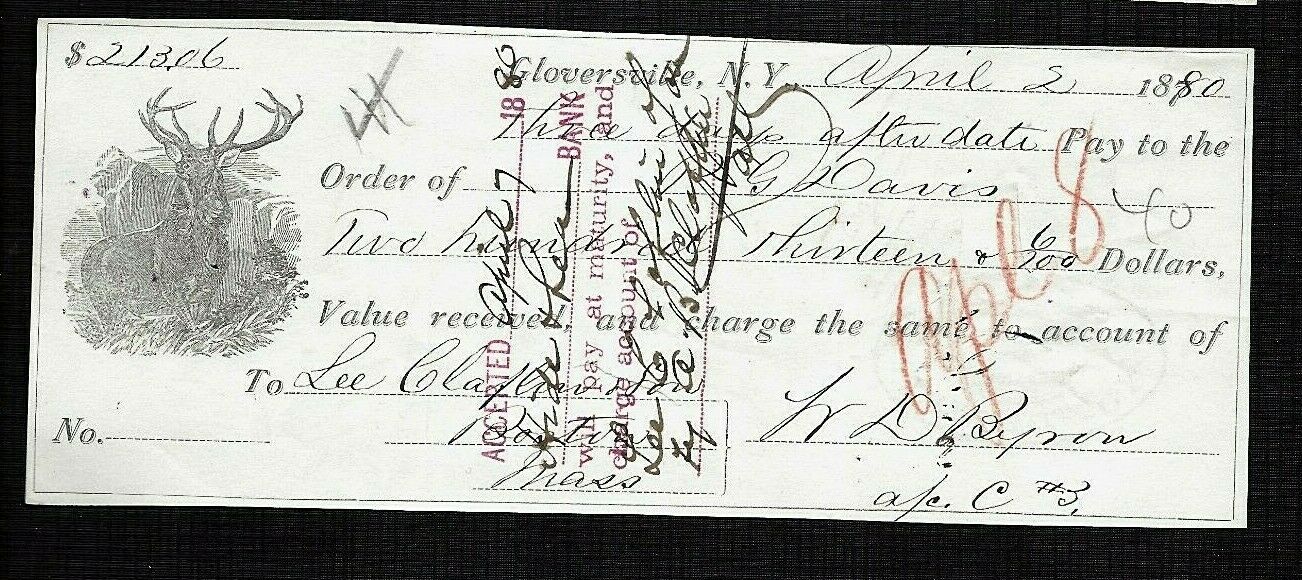 $213.06
Gloversville, N.Y., April 2 1880
Three days after date Pay to the
Order of G Davis
Two hundred Thirteen & 6/100 Dollars,
Value received, and charge the same to account of
To Lee Claflin & Son W D Byron
No. Boston
Mass a/c. C #3.
ACCEPTED April 7 1880
BANK
will pay at maturity, and
charge account of
Apl 8
40